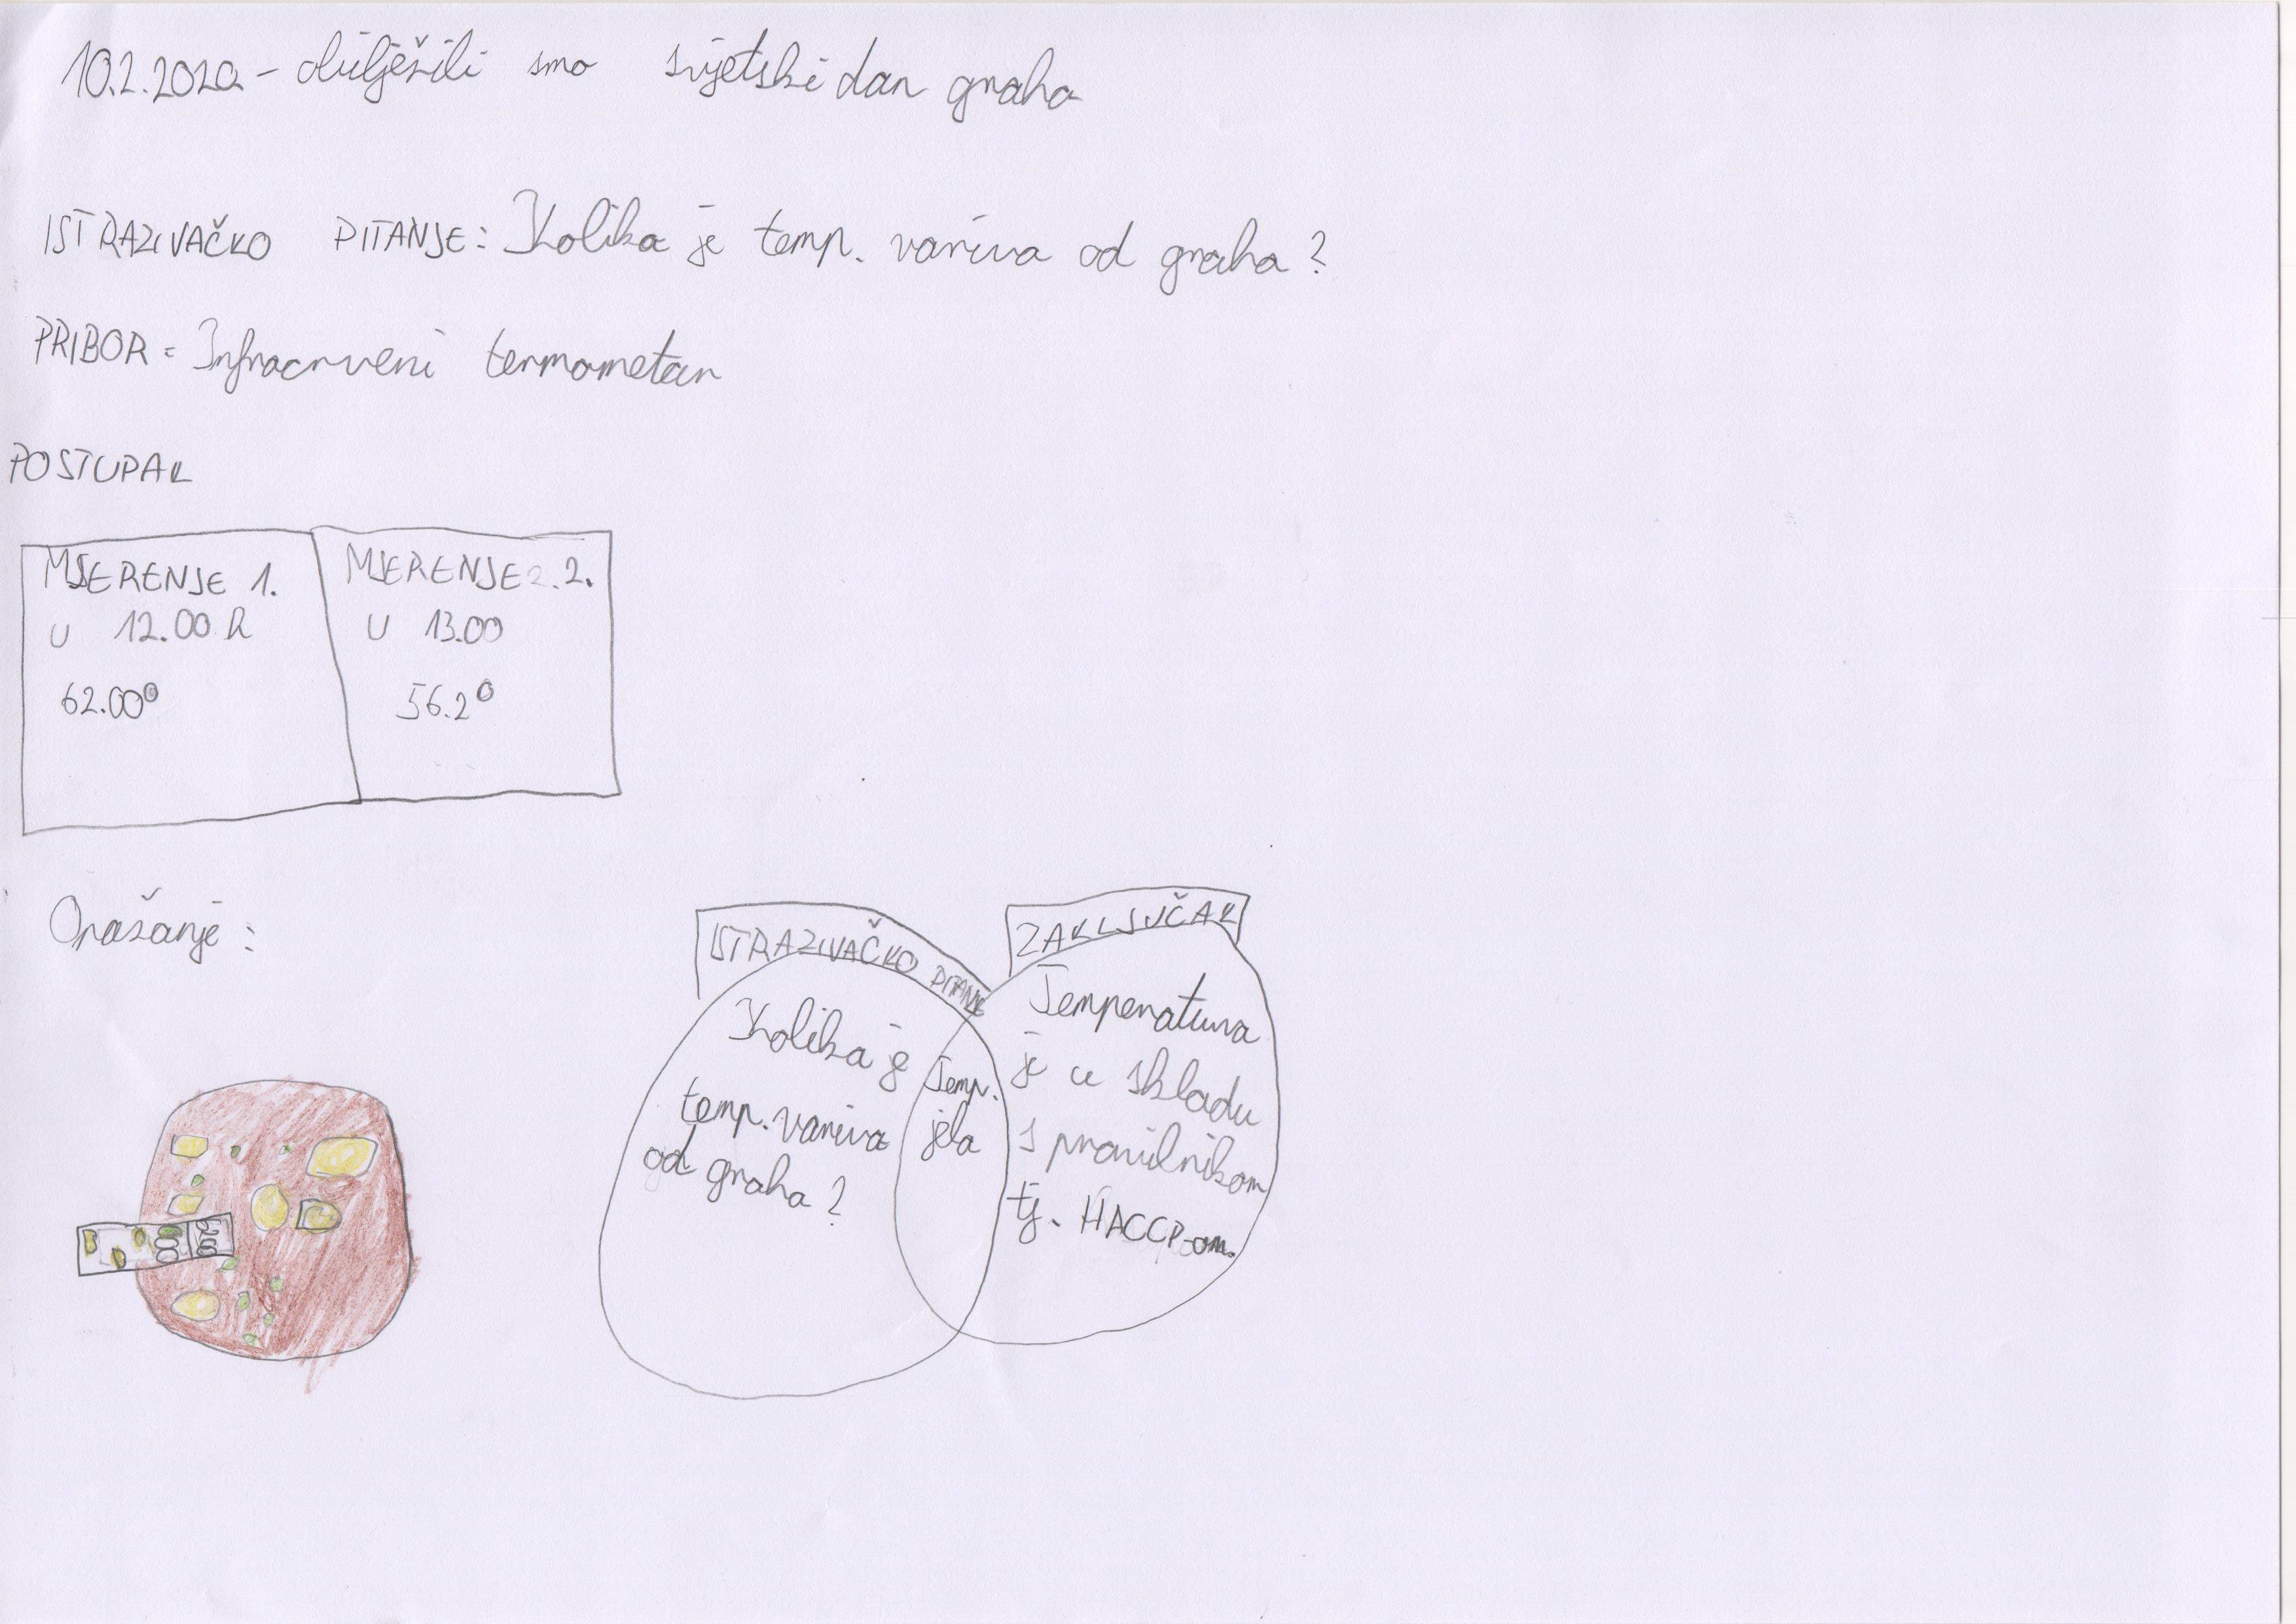 10.2.2020 - obilježili smo svjetski dan graha
ISTRAZIVAČKO PITANJE: Kolika je temp. variva od graha?
PRIBOR = Infracrveni termometar
POSTUPAK
MJERENJE 1.
U 12.00 h
62.00°
MJERENJE 2.
U 13.00
56.2°
Opažanje:
ISTRAZIVAČKO PITANJE
Kolika je
temp. variva
od graha?
Temp.
jela
ZAKLJUČAK
Temperatura
je u skladu
s pravilnikom
tj. HACCP-om.